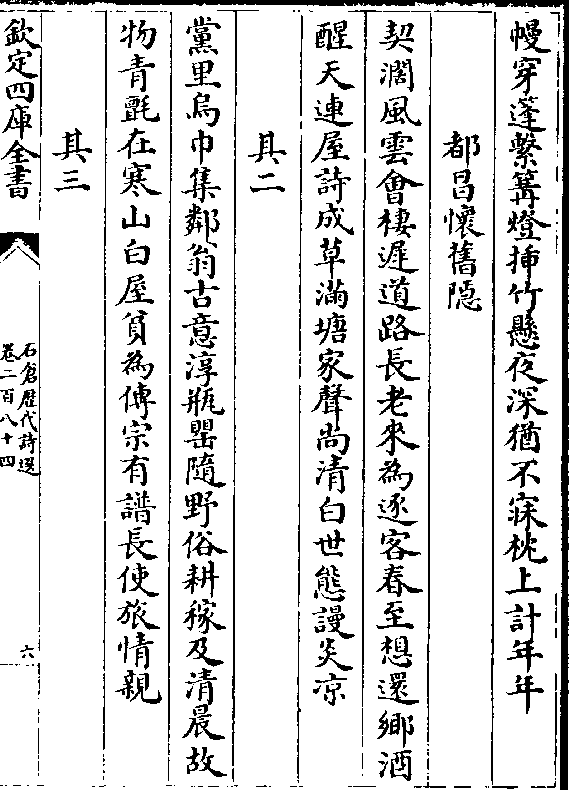 幔穿蓬繫篝燈挿竹懸夜深猶不寐枕上計年年
都昌懷舊隠
契濶風雲會棲遲道路長老來為逐客春至想還鄉酒
醒天連屋詩成草滿塘家聲尚清白世態謾炎凉
其二
黨里烏巾集鄰翁古意淳瓶罌隨野俗耕稼及清晨故
物青氊在寒山白屋貧為傳宗有譜長使旅情親
其三
欽定四庫全書
石倉歴代詩選
卷二百八十四
六